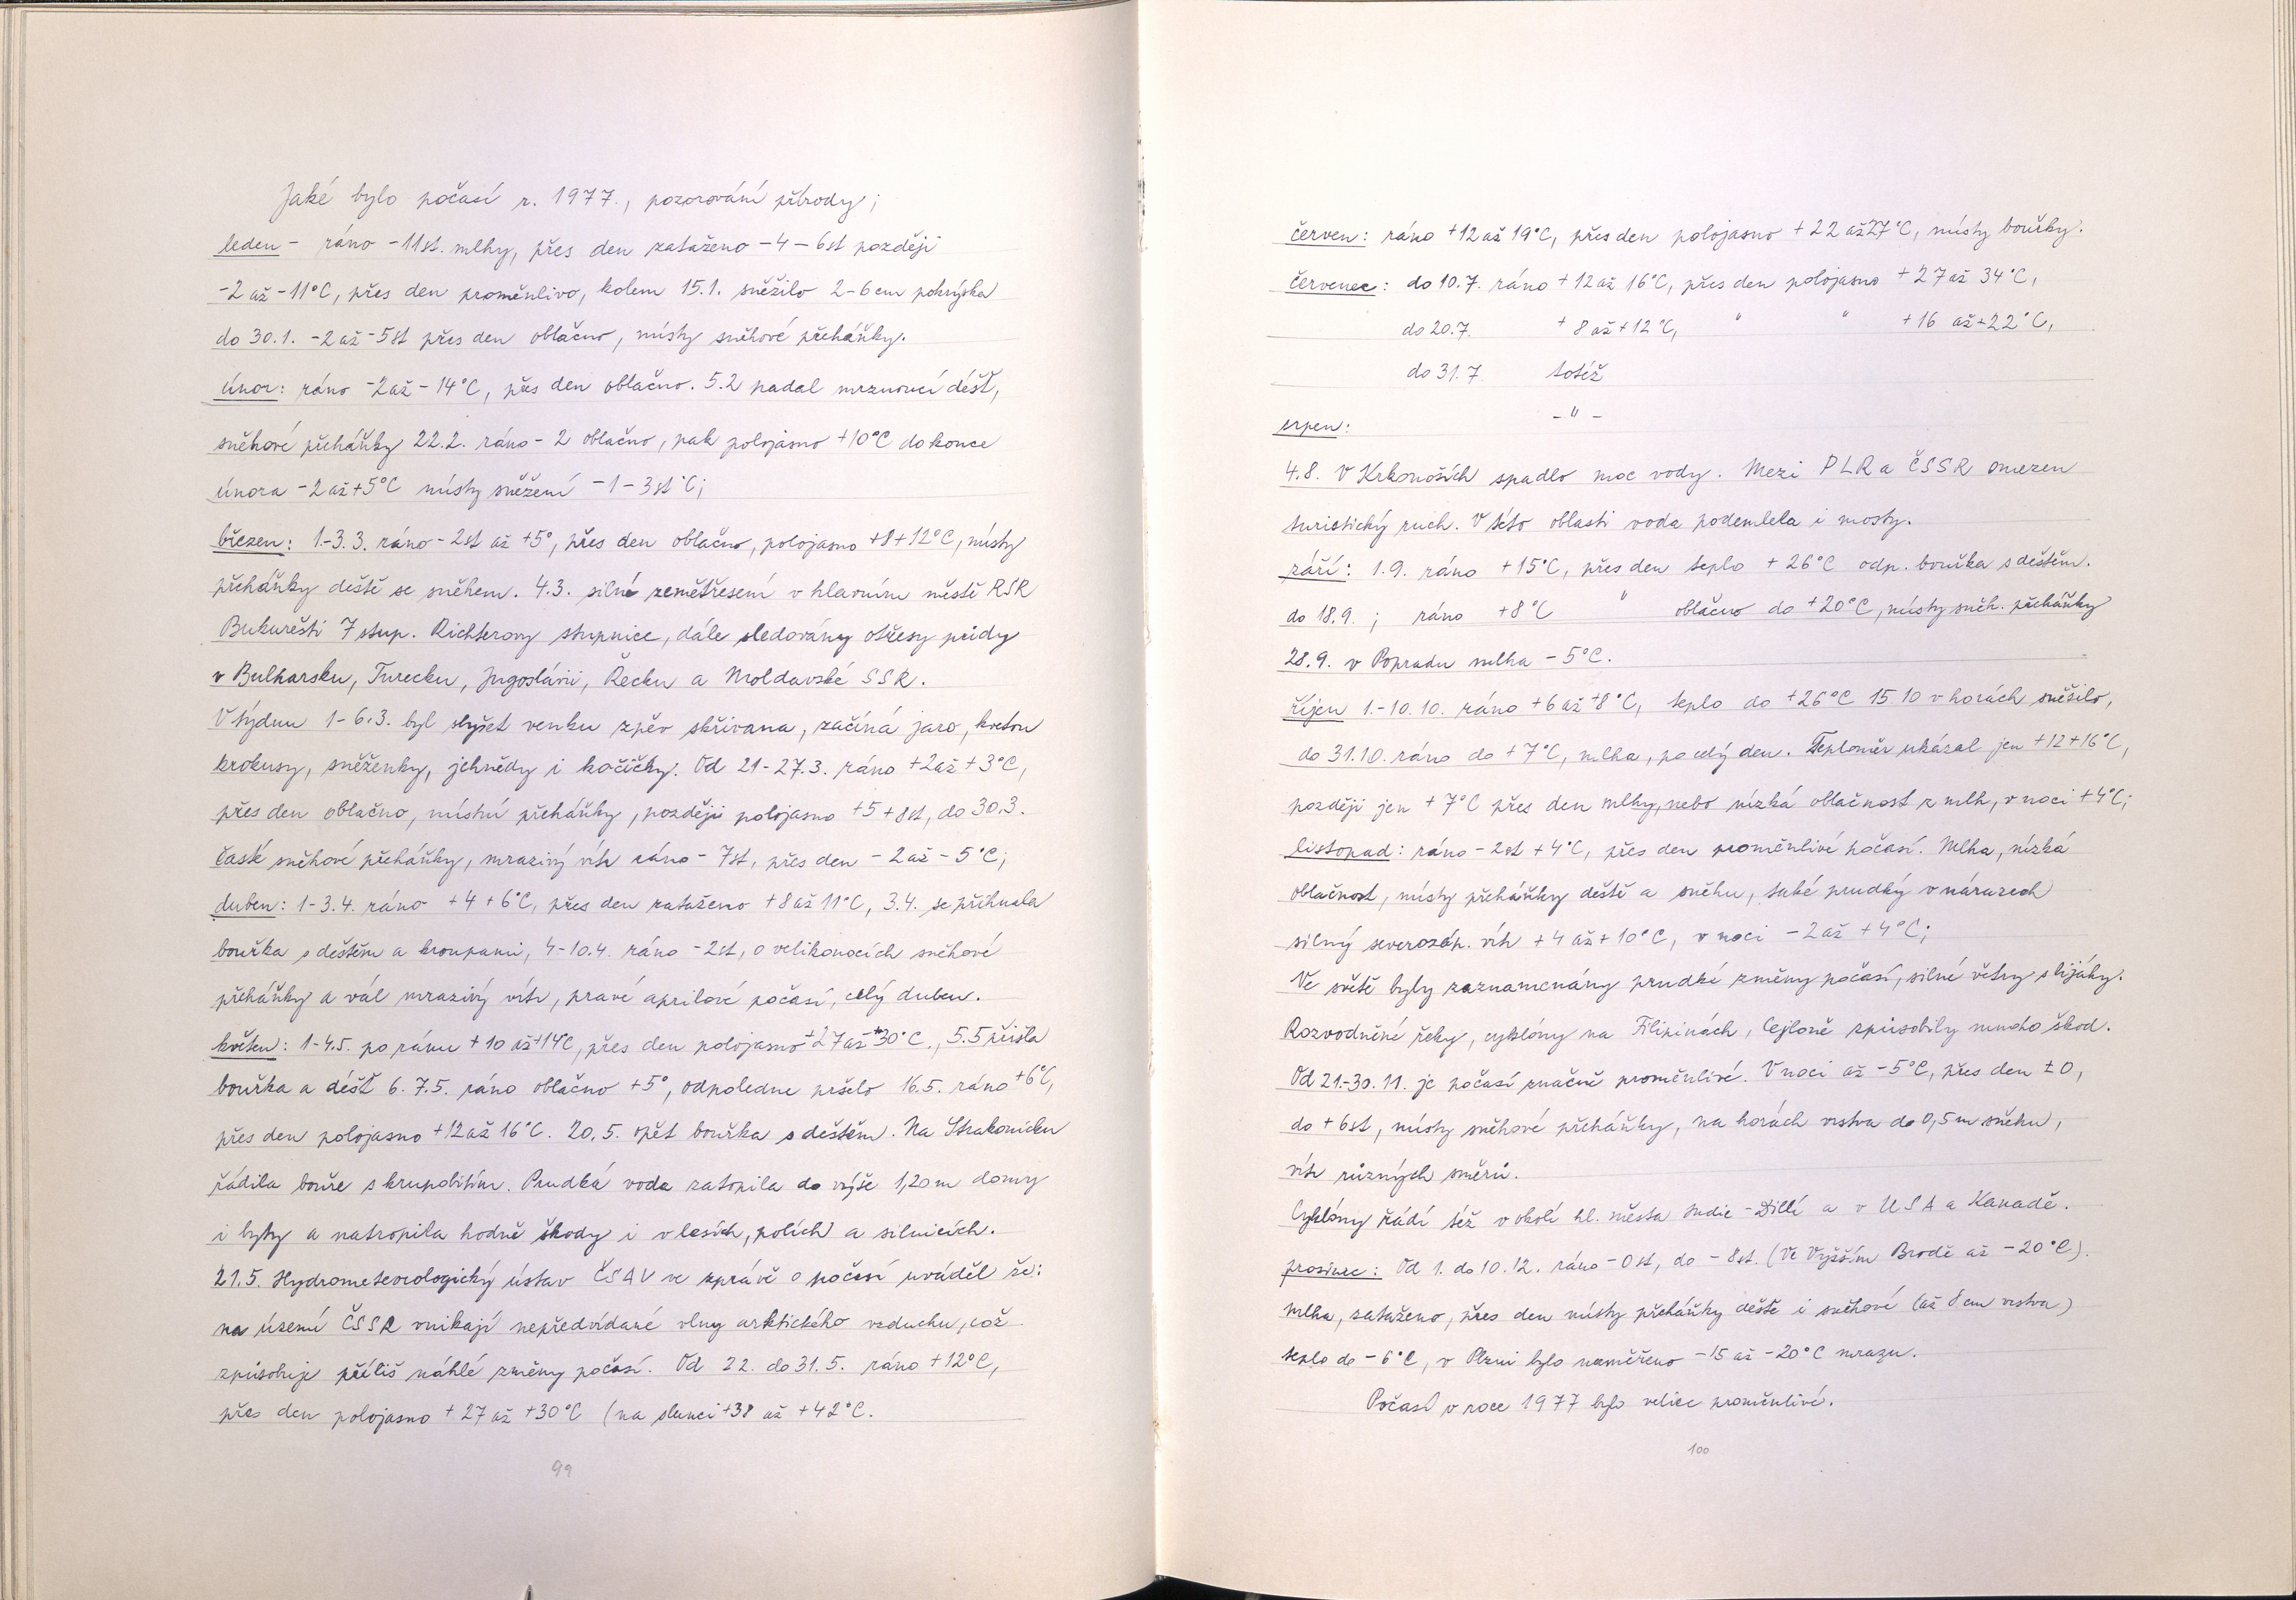 Jaké bylo počasí r. 1977., pozorování přírody;
leden - ráno -11st. mlhy, přes den zataženo -4 -6st později
-2 až -11°C, přes den proměnlivo, kolem 15.1. sněžilo 2-6cm pokrývka
do 30.1. -2 až -5st přes den oblačno, místy sněhové přeháňky.
únor: ráno -2 až -14°C, přes den oblačno. 5.2 padal mrznoucí déšť,
sněhové přeháňky 22.2. ráno -2 oblačno, pak polojasno +10°C do konce
února -2 až +5°C místy sněžení -1 -3st°C;
březen: 1.-3.3. ráno -2st až +5°, přes den oblačno, polojasno +8+12°C, místy
přeháňky deště se sněhem. 4.3. silné zemětřesení v hlavním městě RSR
Bukurešti 7 stup. Richterovy stupnice, dále sledovány otřesy půdy
v Bulharsku, Turecku, Jugoslávii, Řecku a Moldavské SSR.
V týdnu 1-6.3. byl slyšet venku zpěv skřivana, začíná jaro, kvetou
krokusy, sněženky, jehnědy i kočičky. Od 21-27.3. ráno +2 až +3°C,
přes den oblačno, místní přeháňky, později polojasno +5 +8st, do 30.3.
časté sněhové přeháňky, mrazivý vítr ráno -7st, přes den -2 až -5°C;
duben: 1-3.4. ráno +4 +6°C, přes den zataženo +8 až 11°C, 3.4. se přihnala
bouřka s deštěm a kroupami, 4-10.4. ráno -2st, o velikonocích sněhové
přeháňky a vál mrazivý vítr, pravé aprílové počasí, celý duben.
květen: 1-4.5. po ránu +10 až +14°C, přes den polojasno +27 až +30°C., 5.5 přišla
bouřka a déšť 6. 7.5. ráno oblačno +5°, odpoledne pršelo 16.5. ráno +6°C,
přes den polojasno +12 až 16°C. 20.5. opět bouřka s deštěm. Na Strakonicku
řádila bouře s krupobitím. Prudká voda zatopila do výše 1,20m domy
i byty a natropila hodně škody i v lesích, polích a silnicích.
21.5. Hydrometeorologický ústav ČSAV ve zprávě o počasí uváděl že:
na území ČSSR vnikají nepředvídané vlny arktického vzduchu, což
způsobuje příliš náhlé změny počasí. Od 22. do 31.5. ráno +12°C,
přes den polojasno +27 až +30°C (na slunci +38 až +42°C.
99
červen: ráno +12 až 19°C, přes den polojasno +22 až 27°C, místy bouřky.
červenec: do 10.7. ráno +12 až 16°C, přes den polojasno +27 až 34°C,
do 20.7. +8 až +12°C, " " +16 až +22°C,
do 31.7. totéž
srpen: - " -
4.8. V Krkonoších spadlo moc vody. Mezi PLR a ČSSR omezen
turistický ruch. V této oblasti voda podemlela i mosty.
září: 1.9. ráno +15°C, přes den teplo +26°C odp. bouřka s deštěm.
do 18.9.; ráno +8°C " oblačno do +20°C, místy sněh. přeháňky
28.9. v Popradu mlha -5°C.
říjen 1.-10.10. ráno +6 až +8°C, teplo do +26°C 15.10 v horách sněžilo,
do 31.10. ráno do +7°C, mlha, po celý den. Teploměr ukázal jen +12+16°C,
později jen +7°C přes den mlhy, nebo nízká oblačnost z mlh, v noci +4°C;
listopad: ráno -2st +4°C, přes den proměnlivé počasí. Mlha, nízká
oblačnost, místy přeháňky deště a sněhu, také prudký v nárazech
silný severozáp. vítr +4 až +10°C, v noci -2 až +4°C;
Ve světě byly zaznamenány prudké změny počasí, silné větry s lijáky.
Rozvodněné řeky, cyklóny na Filipinách, Cejloně způsobily mnoho škod.
Od 21.-30.11. je počasí značně proměnlivé. V noci až -5°C, přes den ±0,
do +6st, místy sněhové přeháňky, na horách vrstva do 0,5m sněhu,
vítr různých směrů.
Cyklóny řádí též v okolí hl. města Indie - Dillí a v USA a Kanadě.
prosinec: Od 1. do 10.12. ráno -0st, do -8st. (Ve Vyšším Brodě až -20°C).
mlha, zataženo, přes den místy přeháňky deště i sněhové (až 8cm vrstva)
teplo do -6°C, v Plzni bylo naměřeno -15 až -20°C mrazu.
Počasí v roce 1977 bylo velice proměnlivé.
100